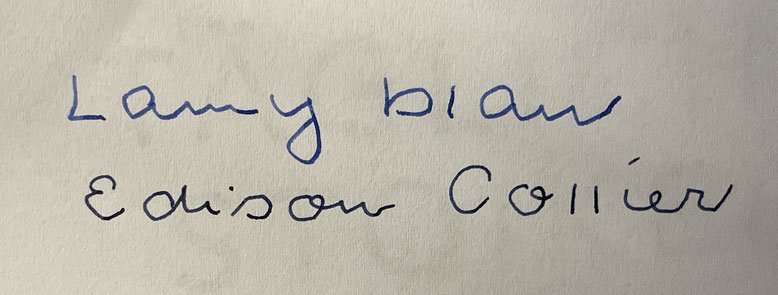 Lamy blau
Edison Collier